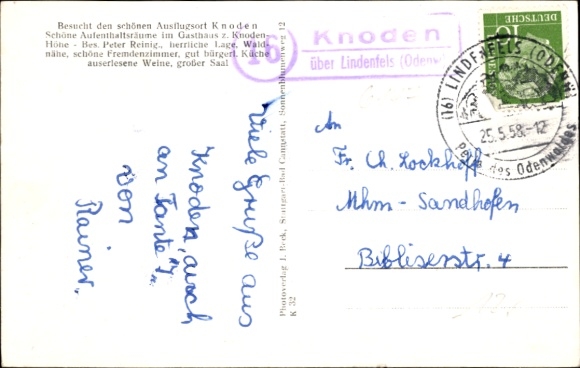 Besucht den schönen Ausflugsort Knoden
Schöne Aufenthaltsräume im Gasthaus z. Knoden-
Höne - Bes. Peter Reinig, herrliche Lage, Wald-
nähe, schöne Fremdenzimmer, gut bürgerl. Küche
auserlesene Weine, großer Saal
(16) Knoden
über Lindenfels (Odenw
DEUTSCHE
10
(16) LINDENFELS (ODENW)
25.5.58.-12
Perle des Odenwaldes
Viele Grüße aus
Knoden, auch
an Tante
von
Rainer.
Photoverlag J. Beck, Stuttgart-Bad Cannstatt, Sonnenblumenweg 12
K 32
An
Fr. Ch. Lockhoff
Mhm - Sandhofen
Bibliserstr. 4